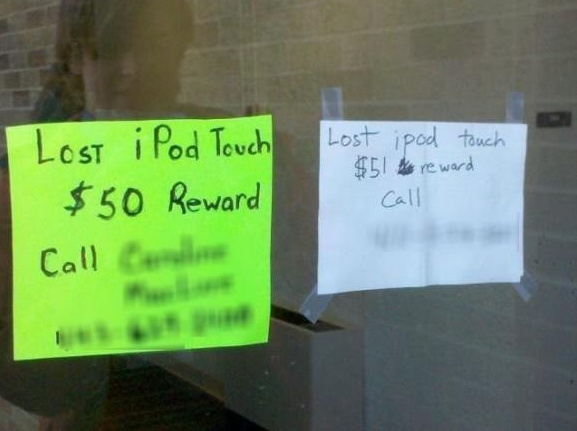 Lost iPod Touch
$50 Reward
Call
Lost ipod touch
$51 reward
Call